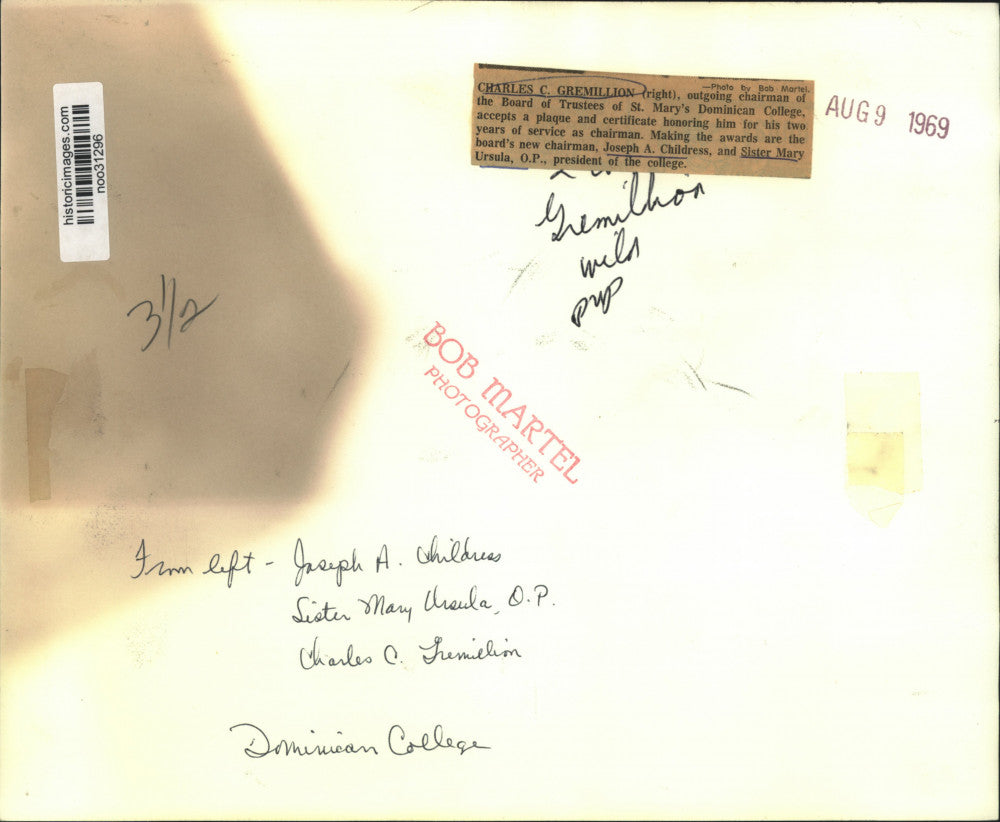 —Photo by Bob Martel.
CHARLES C. GREMILLION (right), outgoing chairman of
the Board of Trustees of St. Mary's Dominican College,
accepts a plaque and certificate honoring him for his two
years of service as chairman. Making the awards are the
board's new chairman, Joseph A. Childress, and Sister Mary
Ursula, O.P., president of the college.
AUG 9 1969
historicimages.com
noo31296
Gremillion
3 1/2
BOB MARTEL
PHOTOGRAPHER
From left - Joseph A. Childress
Sister Mary Ursula, O.P.
Charles C. Gremillion
Dominican College